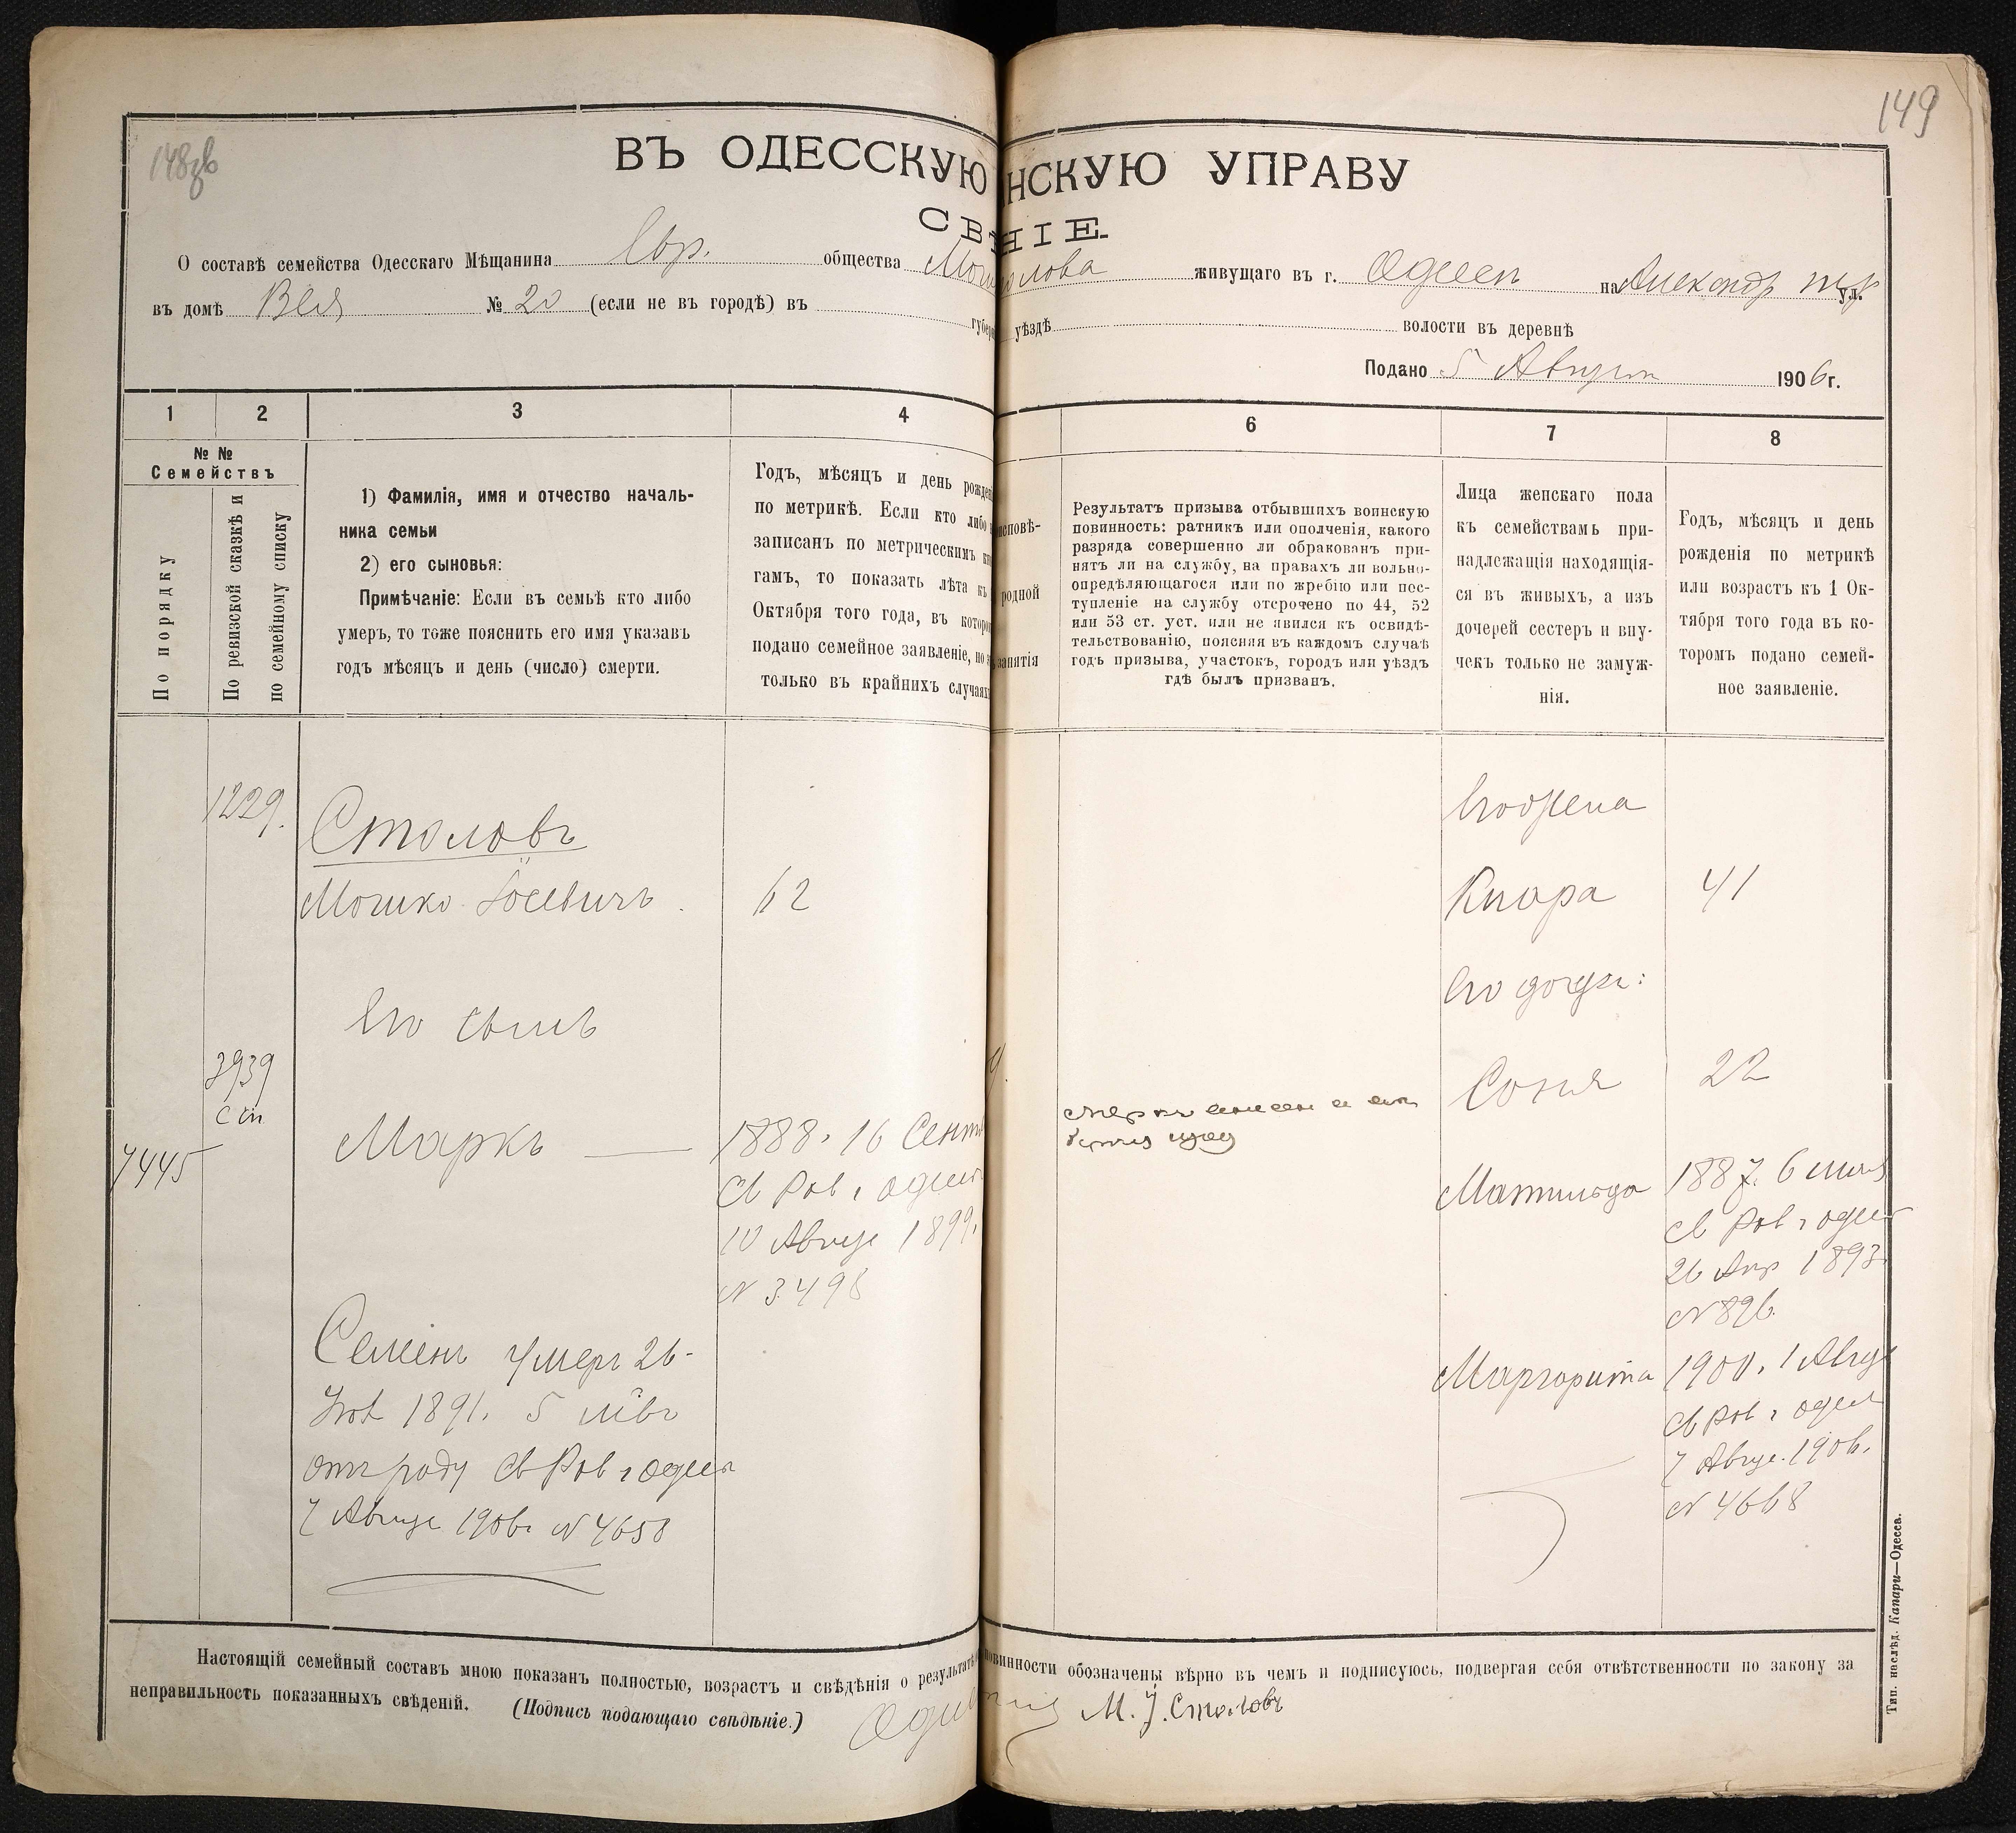 149
148
ВЪ ОДЕССКУЮ НСКУЮ УПРАВУ
СВѢ НІЕ
О составѣ семейства Одесскаго Мѣщанина Евр. общества Мош олова живущаго въ г. Одессѣ на Александр ул.
въ домѣ № 20 (если не въ городѣ) въ губер уѣздѣ волости въ деревнѣ
Подано 5 Августа 1906 г.
1 2 3 4 6 7 8
№ №
Семействъ
По порядку
По ревизской сказкѣ и
по семейному списку
1) Фамилія, имя и отчество началь-
ника семьи
2) его сыновья:
Примѣчаніе: Если въ семьѣ кто либо
умеръ, то тоже пояснить его имя указавъ
годъ мѣсяцъ и день (число) смерти.
Годъ, мѣсяцъ и день рожден
по метрикѣ. Если кто либо
записанъ по метрическимъ кн
гамъ, то показать лѣта къ
Октября того года, въ которо
подано семейное заявленіе, но
только въ крайнихъ случаях
исповѣ-
родной
занятія
Результатъ призыва отбывшихъ воинскую
повинность: ратникъ или ополченія, какого
разряда совершенно ли обракованъ при-
нятъ ли на службу, на правахъ ли вольно-
опредѣляющагося или по жребію или пос-
тупленіе на службу отсрочено по 44, 52
или 53 ст. уст. или не явился къ освидѣ-
тельствованію, поясняя въ каждомъ случаѣ
годъ призыва, участокъ, городъ или уѣздъ
гдѣ былъ призванъ.
Лица женскаго пола
къ семействамъ при-
надлежащія находящія-
ся въ живыхъ, а изъ
дочерей сестеръ и вну-
чекъ только не замуж-
нія.
Годъ, мѣсяцъ и день
рожденія по метрикѣ
или возрастъ къ 1 Ок-
тября того года въ ко-
торомъ подано семей-
ное заявленіе.
1229.
Столовъ
Мошко Іосевичъ 62
Его сынъ
3939
сп
7445
Маркъ — 1888. 16 Сент
Св Рав г Одесс
10 Августа 1899.
N 3498
Семенъ умеръ 26-
1891. 5 лѣтъ
отъ роду Св Рав г Одессы
7 Августа 1906 N 4658
Его жена
Клара 41
Его дочери:
Соня 22
Матильда 1887. 6
Св Рав г Одес
26 Апр 1893
N 896.
Маргарита 1900. 1 Авгус
Св Рав г Одес
7 Август. 1906.
N 4668
Настоящій семейный составъ мною показанъ полностью, возрастъ и свѣдѣнія о результатѣ повинности обозначены вѣрно въ чемъ и подписуюсь, подвергая себя отвѣтственности по закону за
неправильность показанныхъ свѣдѣній. (Подпись подающаго свѣдѣніе.) М. І. Столовъ
Тип. наслѣд. Капари—Одесса.